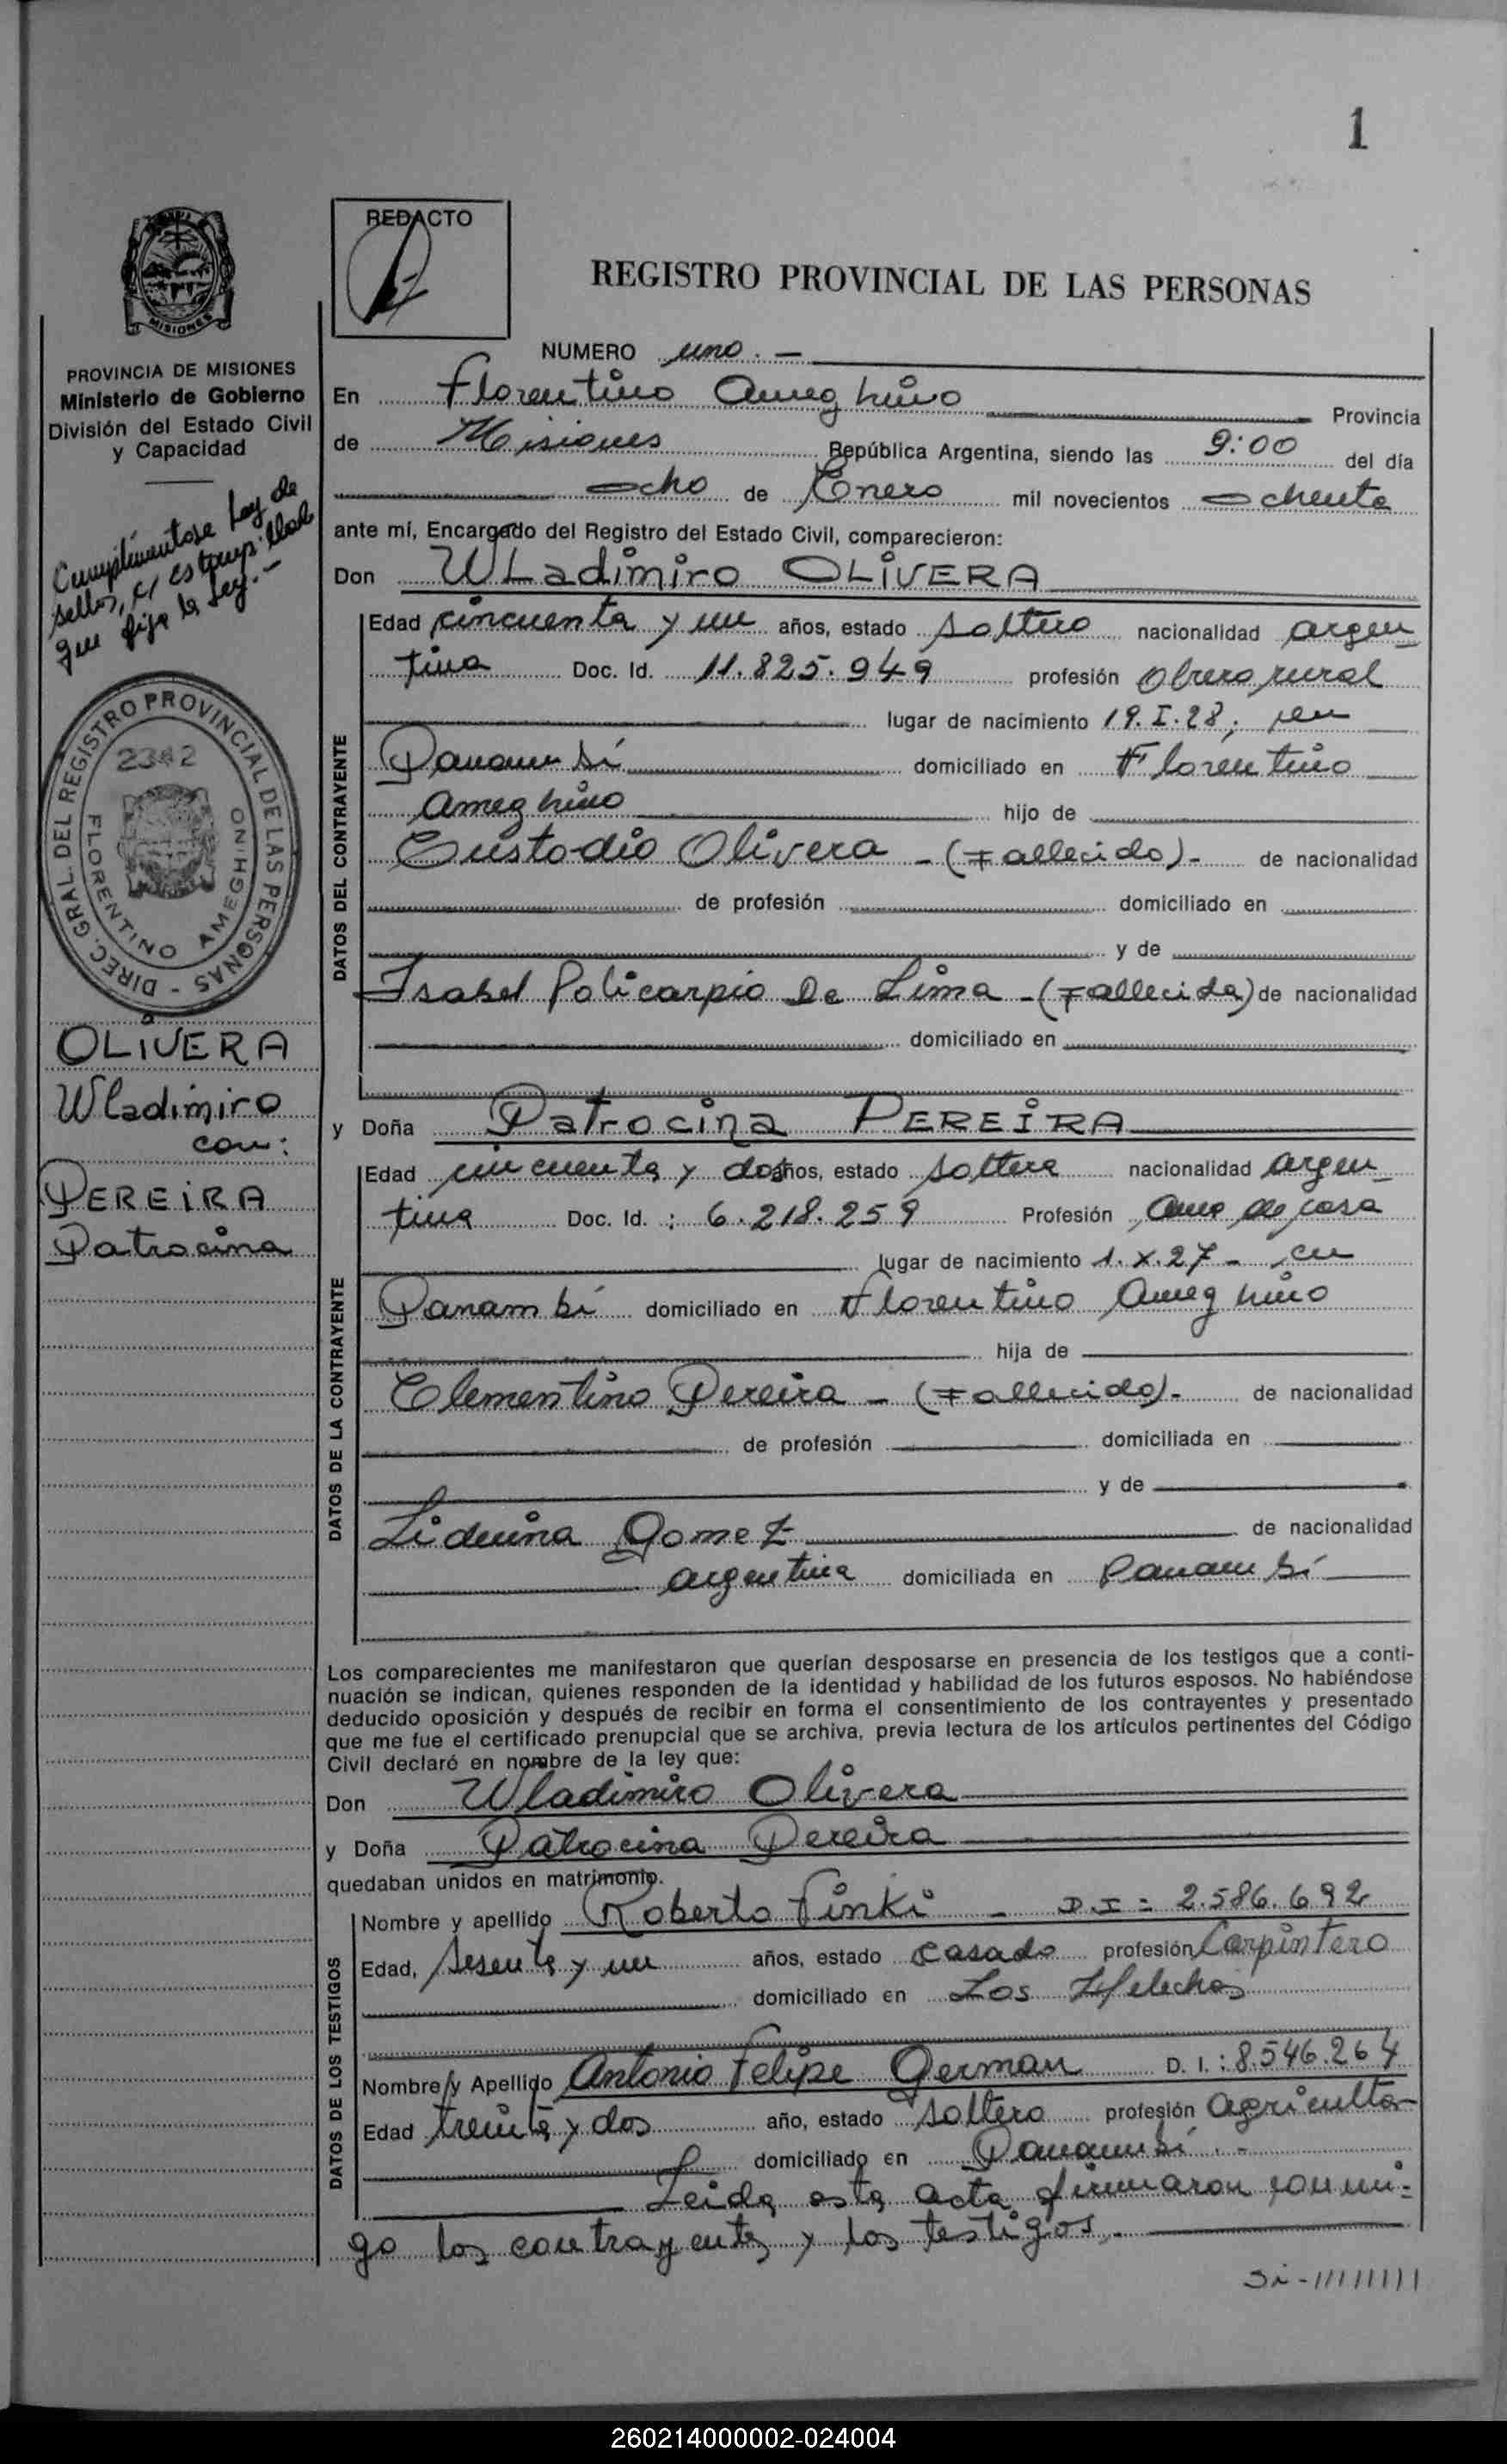 1
REDACTO
REGISTRO PROVINCIAL DE LAS PERSONAS
MISIONES
PROVINCIA DE MISIONES
Ministerio de Gobierno
División del Estado Civil
y Capacidad
Cumplimentose Ley de
sellos, c/ estampillado
que fija la Ley.-
DIREC. GRAL. DEL REGISTRO PROVINCIAL DE LAS PERSONAS -
2342
FLORENTINO AMEGHINO
OLIVERA
Wladimiro
con:
PEREIRA
Patrocina
NUMERO uno.-
En Florentino Ameghino Provincia
de Misiones República Argentina, siendo las 9:00 del día
ocho de Enero mil novecientos ochenta
ante mí, Encargado del Registro del Estado Civil, comparecieron:
Don WLadimiro OLIVERA
DATOS DEL CONTRAYENTE
Edad cincuenta y un años, estado soltero nacionalidad argen
tina Doc. Id. 11.825.949 profesión Obrero rural
lugar de nacimiento 19.I.28; en
Panambí domiciliado en Florentino
Ameghino hijo de
Custodio Olivera - (Fallecido)- de nacionalidad
de profesión domiciliado en
y de
Isabel Policarpio De Lima - (Fallecida) de nacionalidad
domiciliado en
y Doña Patrocina PEREIRA
DATOS DE LA CONTRAYENTE
Edad cincuenta y dos años, estado soltera nacionalidad argen
tina Doc. Id. : 6.218.259 Profesión Ama de casa
lugar de nacimiento 1.X.27- en
Panambí domiciliado en Florentino Ameghino
hija de
Clementino Pereira - (Fallecido)- de nacionalidad
de profesión domiciliada en
y de
Liduina Gomez de nacionalidad
argentina domiciliada en Panambí
Los comparecientes me manifestaron que querían desposarse en presencia de los testigos que a conti-
nuación se indican, quienes responden de la identidad y habilidad de los futuros esposos. No habiéndose
deducido oposición y después de recibir en forma el consentimiento de los contrayentes y presentado
que me fue el certificado prenupcial que se archiva, previa lectura de los artículos pertinentes del Código
Civil declaré en nombre de la ley que:
Don Wladimiro Olivera
y Doña Patrocina Pereira
quedaban unidos en matrimonio.
DATOS DE LOS TESTIGOS
Nombre y apellido Roberto Finki - D.I: 2.586.692
Edad, sesenta y un años, estado casado profesión Carpintero
domiciliado en Los Helechos
Nombre y Apellido Antonio Felipe German D. I. : 8.546.264
Edad treinta y dos año, estado soltero profesión agricultor
domiciliado en Panambí.-
Leida esta acta firmaron conmi-
go los contrayentes y los testigos.
Si-////////
260214000002-024004